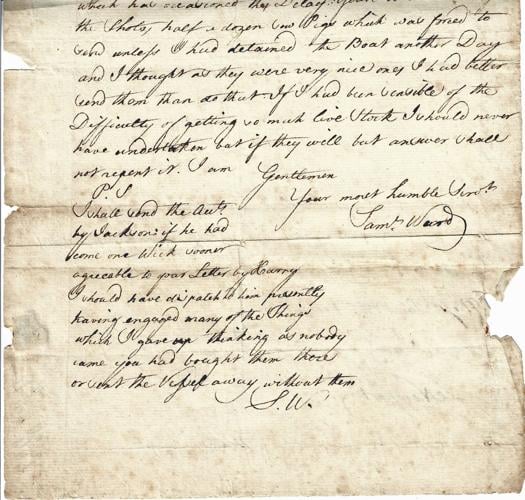 which has occasioned this Delay. Youll
the Shotes half a dozen Sow Pigs which was forced to
send unless I had detained the Boat another Day
and I thought as they were very nice ones I had better
send them than do that. If I had been sensible of the
Difficulty of getting so much live Stock I should never
have undertaken but if they will but answer shall
not repent it. I am Gentlemen
Your most humble Servt.
Saml. Ward
P. S
I shall send the Acct.
by Jackson: if he had
come one Week sooner
agreeable to your Letter by Harry
I should have dispatch'd him presently
having engaged many of the Things
which I gave up thinking as nobody
came you had bought them there
or sent the Vessel away without them
S. W.